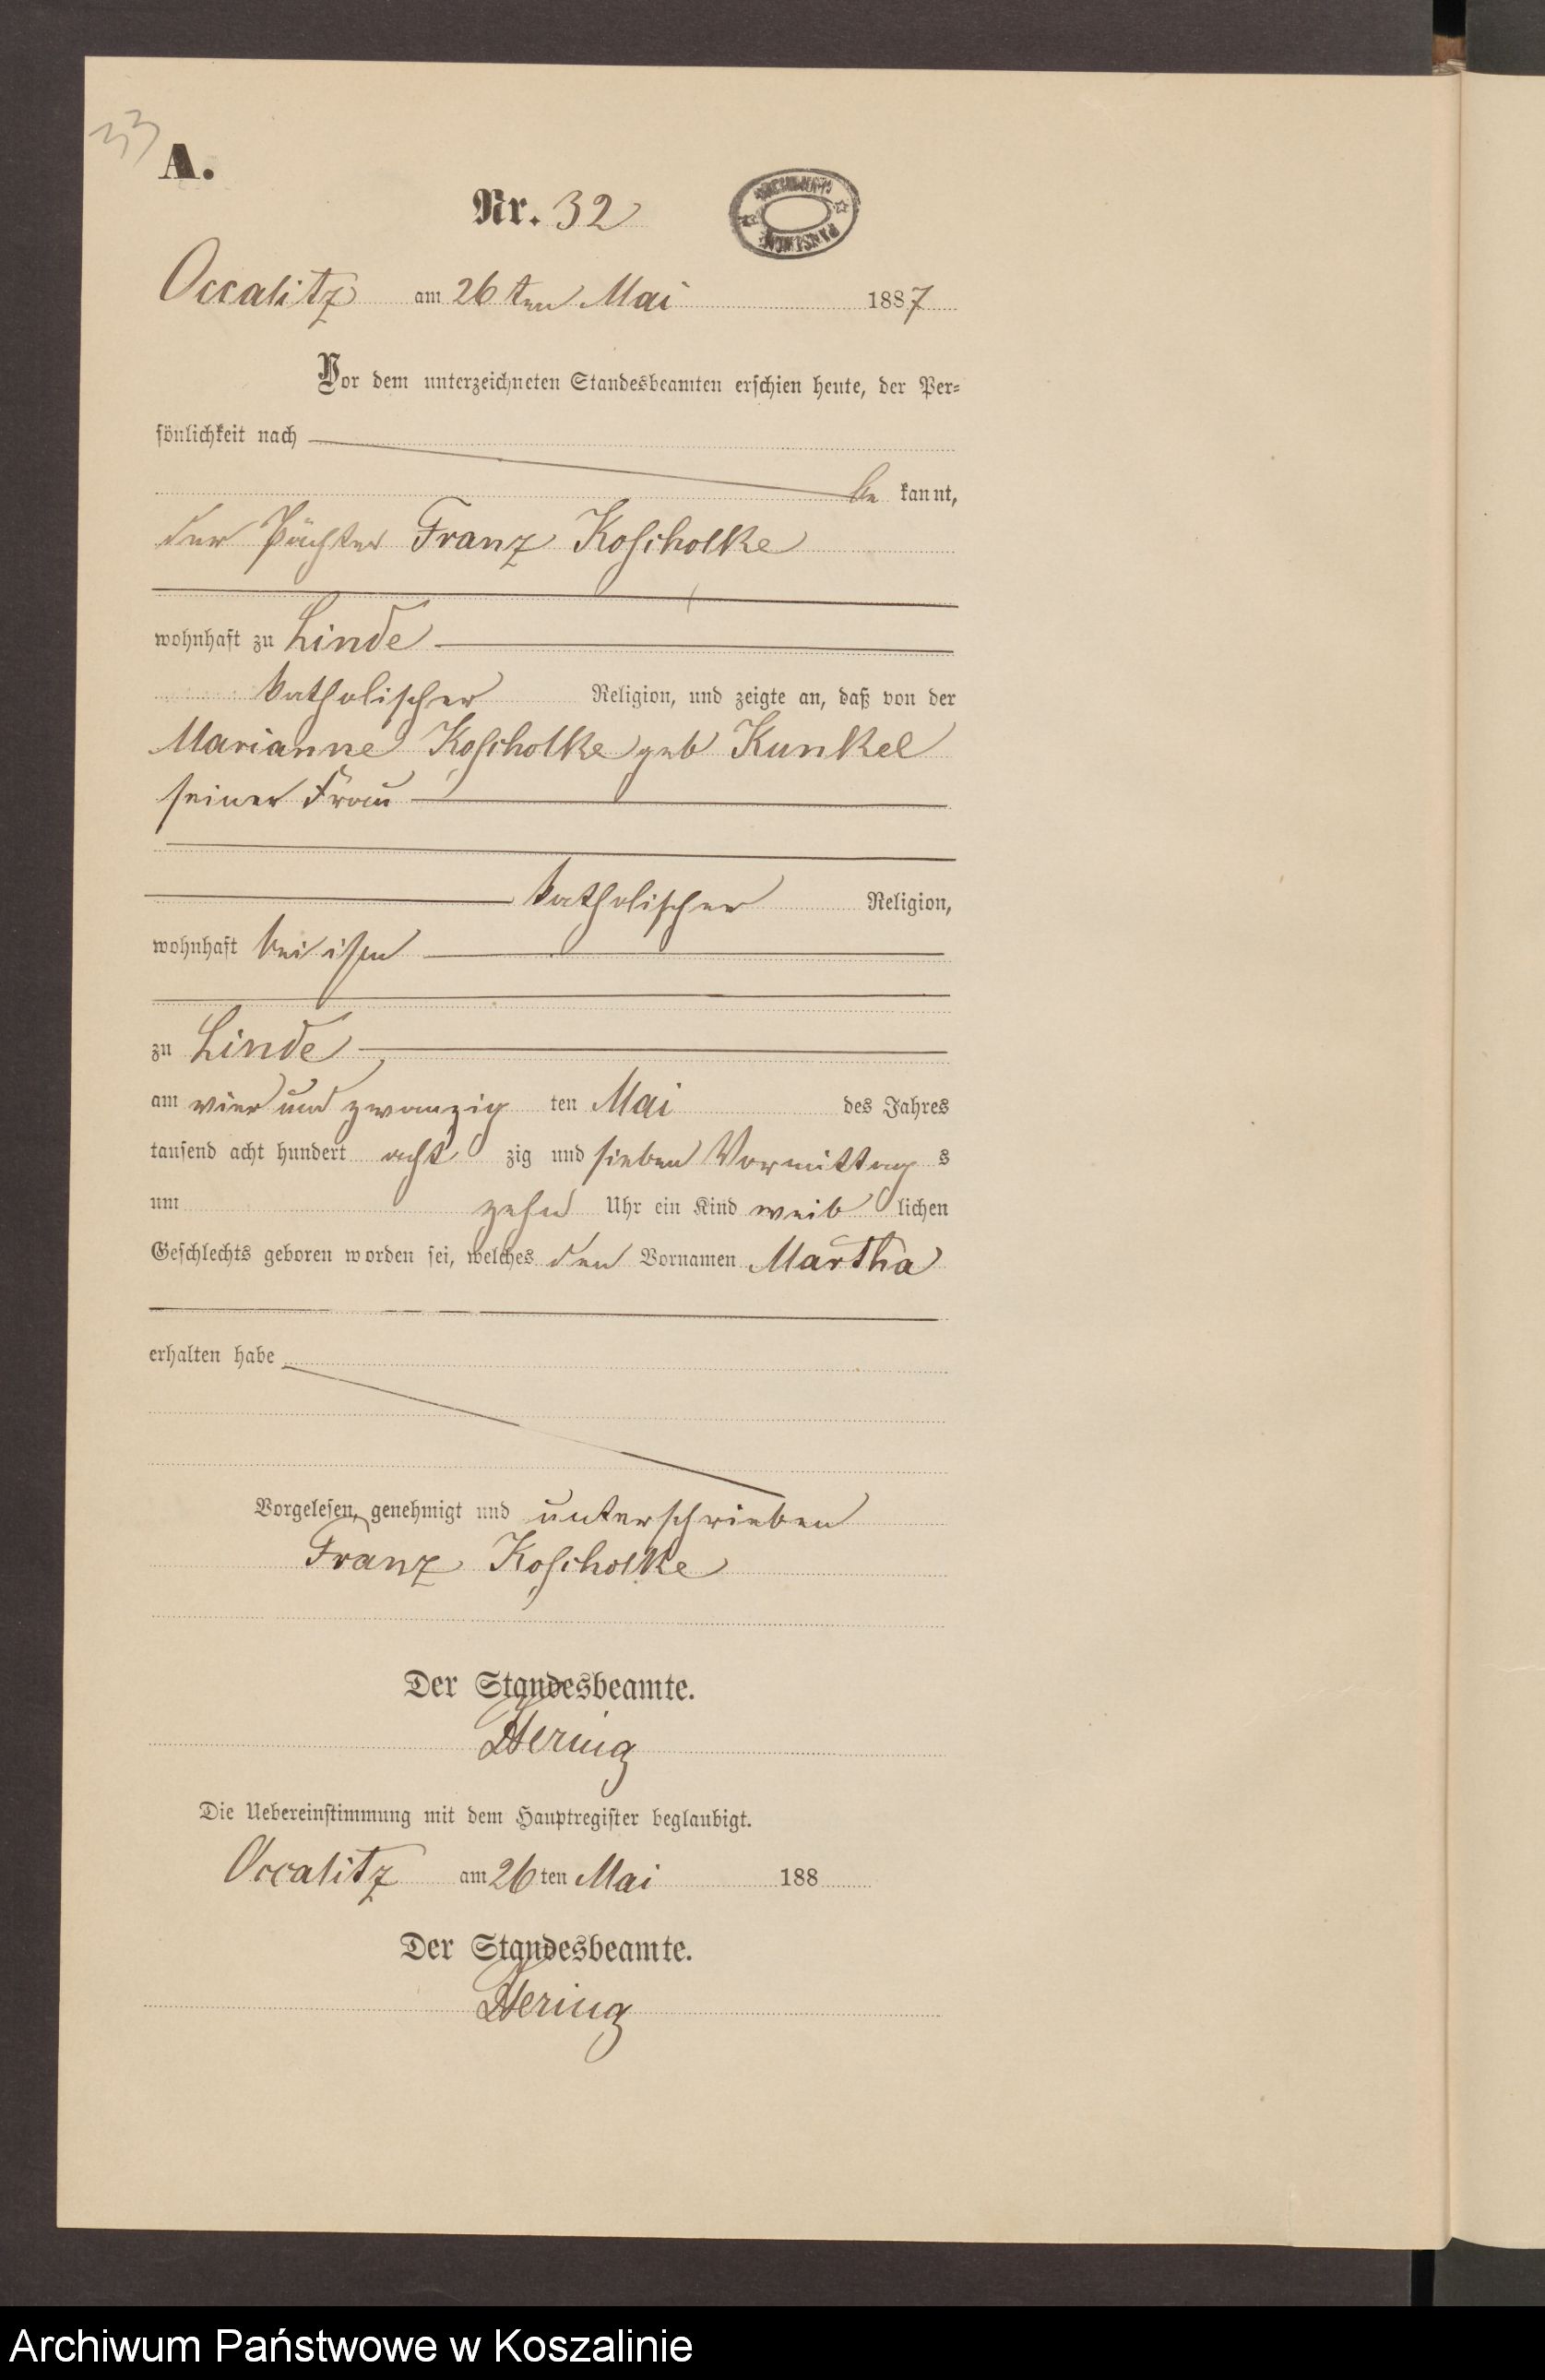 33
A.
Nr. 32
Occalitz am 26 ten Mai 1887
Vor dem unterzeichneten Standesbeamten erschien heute, der Per-
sönlichkeit nach
be kannt,
der Pächter Franz Koscholke
wohnhaft zu Linde
katholischer Religion, und zeigte an, daß von der
Marianne Koscholke geb Kunkel
seiner Frau
katholischer Religion,
wohnhaft bei ihm
zu Linde
am vier und zwanzig ten Mai des Jahres
tausend acht hundert acht zig und sieben Vormittag s
um zehn Uhr ein Kind weib lichen
Geschlechts geboren worden sei, welches den Vornamen Martha
erhalten habe
Vorgelesen, genehmigt und unterschrieben
Franz Koscholke
Der Standesbeamte.
Hering
Die Uebereinstimmung mit dem Hauptregister beglaubigt.
Occalitz am 26 ten Mai 188
Der Standesbeamte.
Hering
Archiwum Państwowe w Koszalinie